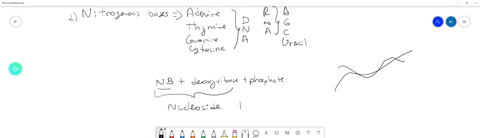 2) Nitrogenous bases => Adenine
Thymine
Guanine
Cytosine
D
N
A
R
N
A
A
G
C
Uracil
NB + deoxyribose + phosphate
Nucleoside